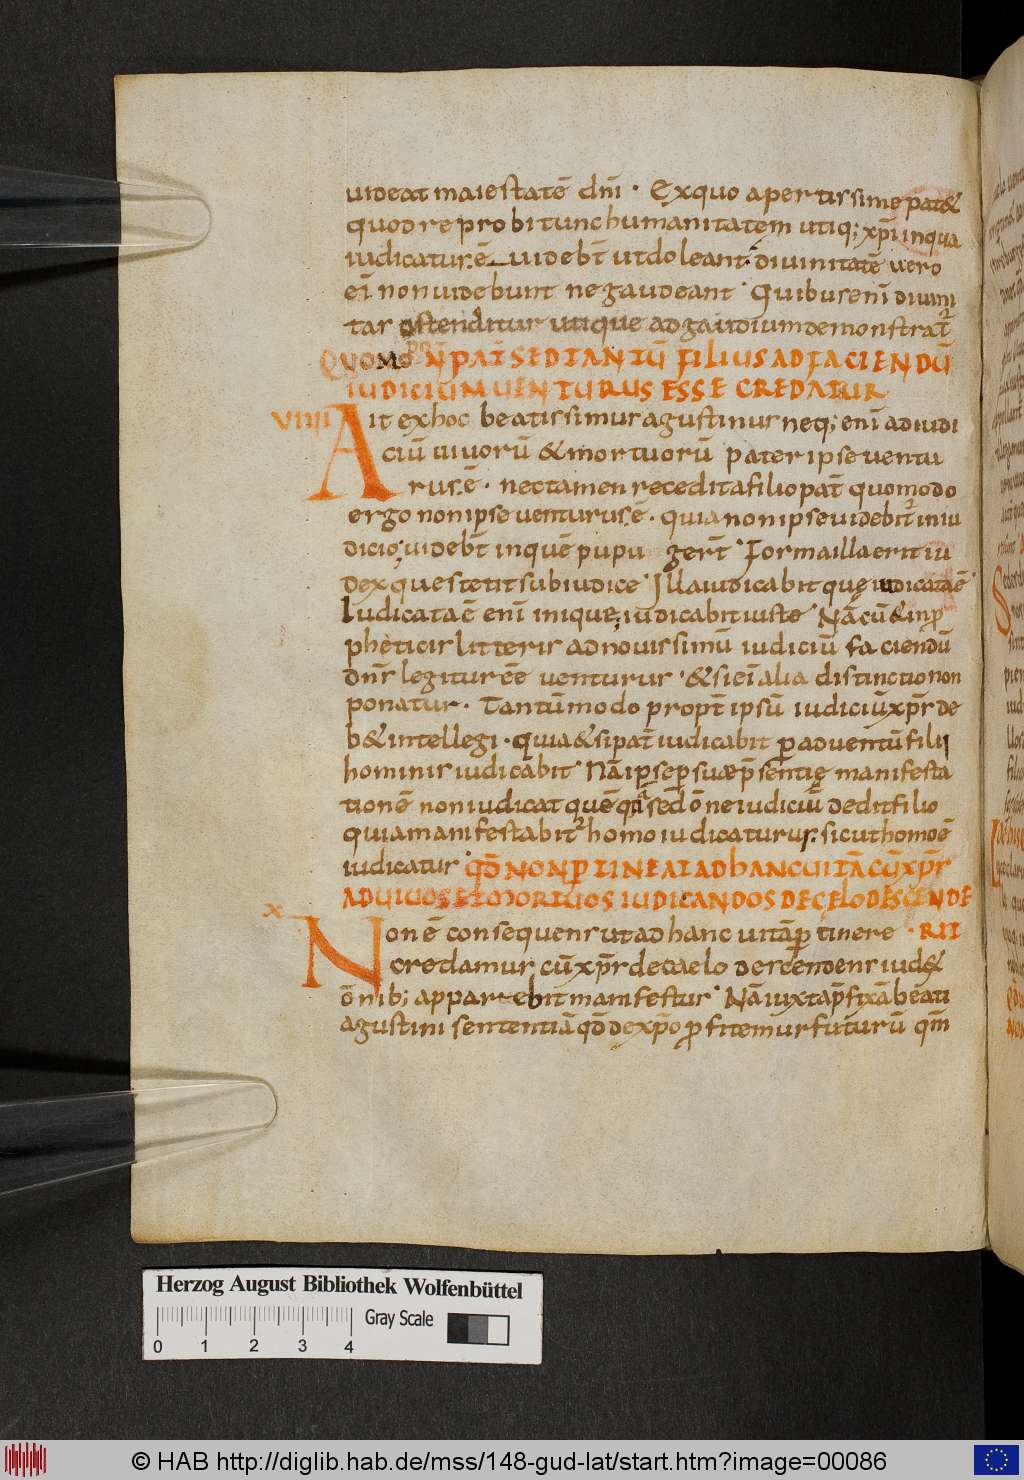 uideat maiestatē dn̄i · Exquo apertissime pat&
quod reprobi tunc humanitatem utiq; xp̄i inqua
iudicatur.ē uidebt̄ ut doleant · diuinitatē uero
eī non uidebunt ne gaudeant · Quibus enī diuini
tas ostenditur utique ad gaudium demonstrat̄
QUOMO N̄ PAT̄ SED TANTŪ FILIUS AD FACIENDŪ
IUDICIUM UENTURUS ESSE CREDATUR
VIIII Ait ex hoc beatissimus agustinus neq; enī ad iudi
ciū uiuorū & mortuorū pater ipse uentu
rus.ē · nec tamen recedit a filio pat̄ quomodo
ergo non ipse uenturus.ē · quia non ipse uidebit̄ in iu
dicio; uidebt̄ in quē pupugert̄ · Forma illa erit iu
dex que stetit sub iudice · Illa iudicabit quę iudicata ē ·
Iudicata ē enī inique; iudicabit iuste · Nā cū & in p
pheticis litteris ad nouissimū iudiciū faciendū
dn̄s legitur eē uenturus · & si eī alia distinctio non
ponatur · Tantūmodo propt̄ ipsū iudiciū xp̄s de
b& intellegi · quia & si pat̄ iudicabit p aduentū filii
hominis iudicabit · Nā ip̄se p suę p̄sentię manifesta
tionē non iudicat quēquā sed ōne iudiciū dedit filio
quia manifestabit̄ homo iudicaturus. sicut homo ē
iudicatur · QD̄ NON PTINEAT AD HANC UITĀ CŪ XP̄S
AD UIUOS ET MORTUOS IUDICANDOS DE CELO DESCENDE
· RIT
X Non ē consequens ut ad hanc uitā ptinere
credamus cū xp̄s de caelo descendens iud&
ōnib; apparebit manifestus · Nā iuxta p̄fixā beati
agustini sententiā qd̄ de xp̄o pfitemur futurū qm̄
Herzog August Bibliothek Wolfenbüttel
Gray Scale
0 1 2 3 4
© HAB http://diglib.hab.de/mss/148-gud-lat/start.htm?image=00086